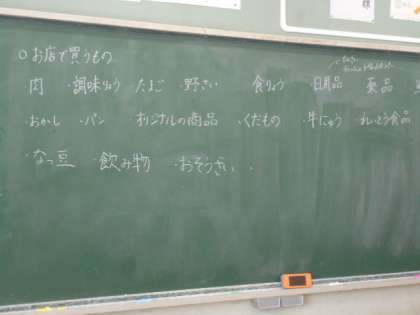 ○お店で買うもの
肉 ・調味りょう たまご ・野さい 食りょう ・日用品 薬品
・おかし ・パン オリジナルの商品 ・くだもの ・牛にゅう れいとう食品
・なっ豆 ・飲み物 ・おそうざい